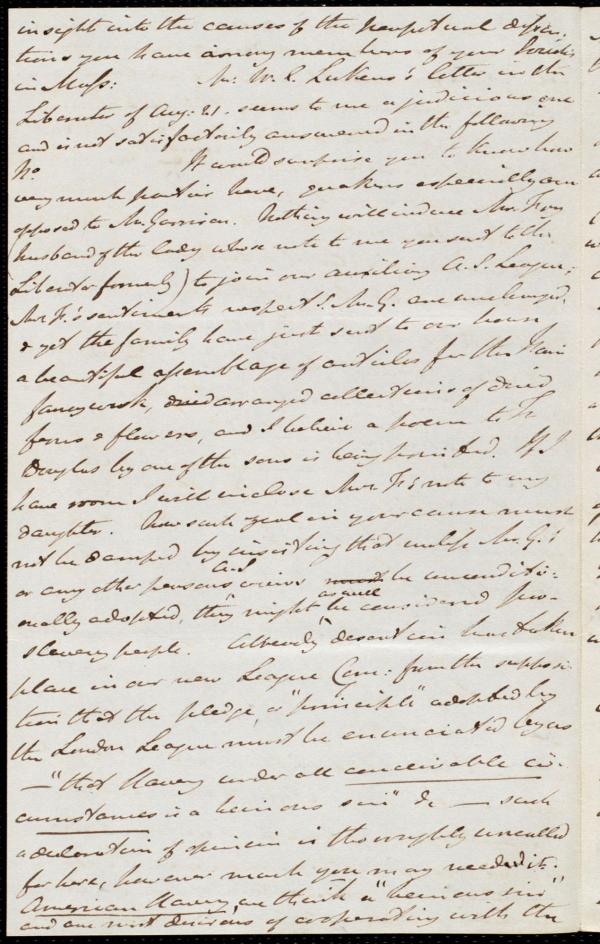 insight into the causes of the perpetual dissen:
tions you have among members of your Societies
in Mass: Mr. W. C. Lukens's letter in the
Liberator of Aug: 21. seems to me a judicious one
and is not satisfactorily answered in the following
No It would surprise you to know how
very much parties here, quakers especially are
opposed to Mr. Garrison. Nothing will induce Mr.
(husband of the lady whose note to me you sent to the
Liberator formerly) to join our auxiliary A. S. League;
Mrs F.'s sentiments respectg. Mr. G. are unchanged.
& yet the family have just sent to our house
a beautiful assemblage of articles for the Fair
fancywork, dried arranged collections of dried
ferns & flowers, and I believe a poem to F.
Douglas by one of the sons is being printed. If I
have room I will inclose Mrs F's note to my
daughter. Now such zeal in your cause must
not be damped by insisting that unless Mr. G.'s
or any other persons views be unconditi:
onally adopted, they might as well be considered pro-
slavery people. Already desertion has taken
place in our new League Com: from the supposi
tion that the pledge, a "principle" adopted by
the London League must be enunciated by us
—"that Slavery under all conceivable cir-
cumstances is a heinous sin" &c — such
a declaration of opinion is thoroughly uncalled
for here, however much you may need it:
American Slavery, we think a "heinous sin"
and are most desirous of cooperating with the